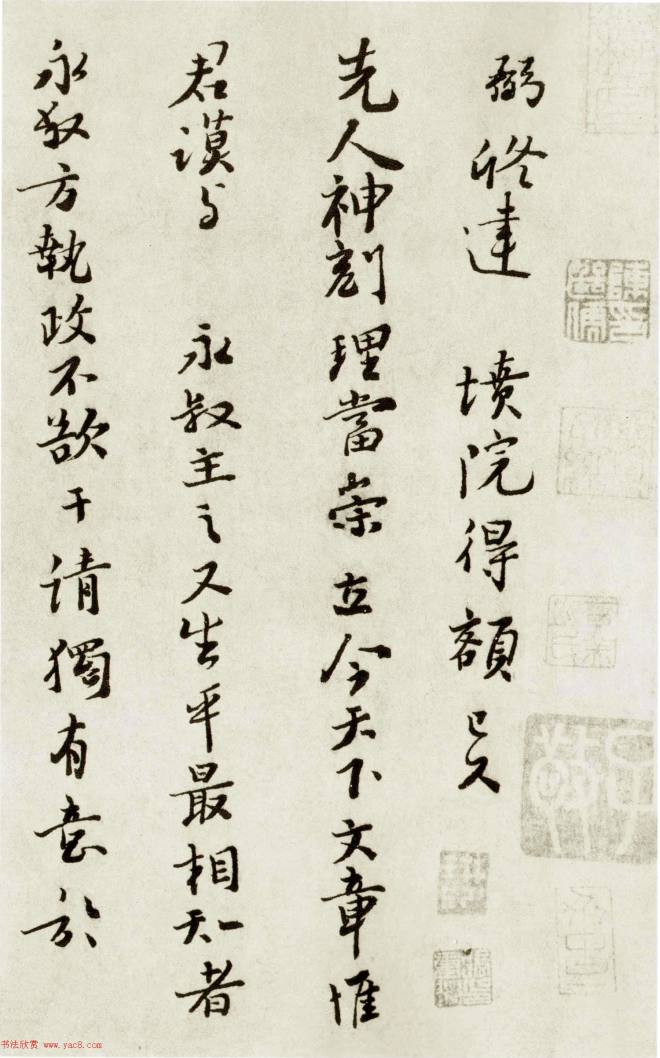 弼修建 墳院得額已久
先人神刻理當崇立今天下文章惟
君謨与 永叔主之又生平最相知者
永叔方執政不欲干请獨有意於
书法欣赏 www.yac8.com